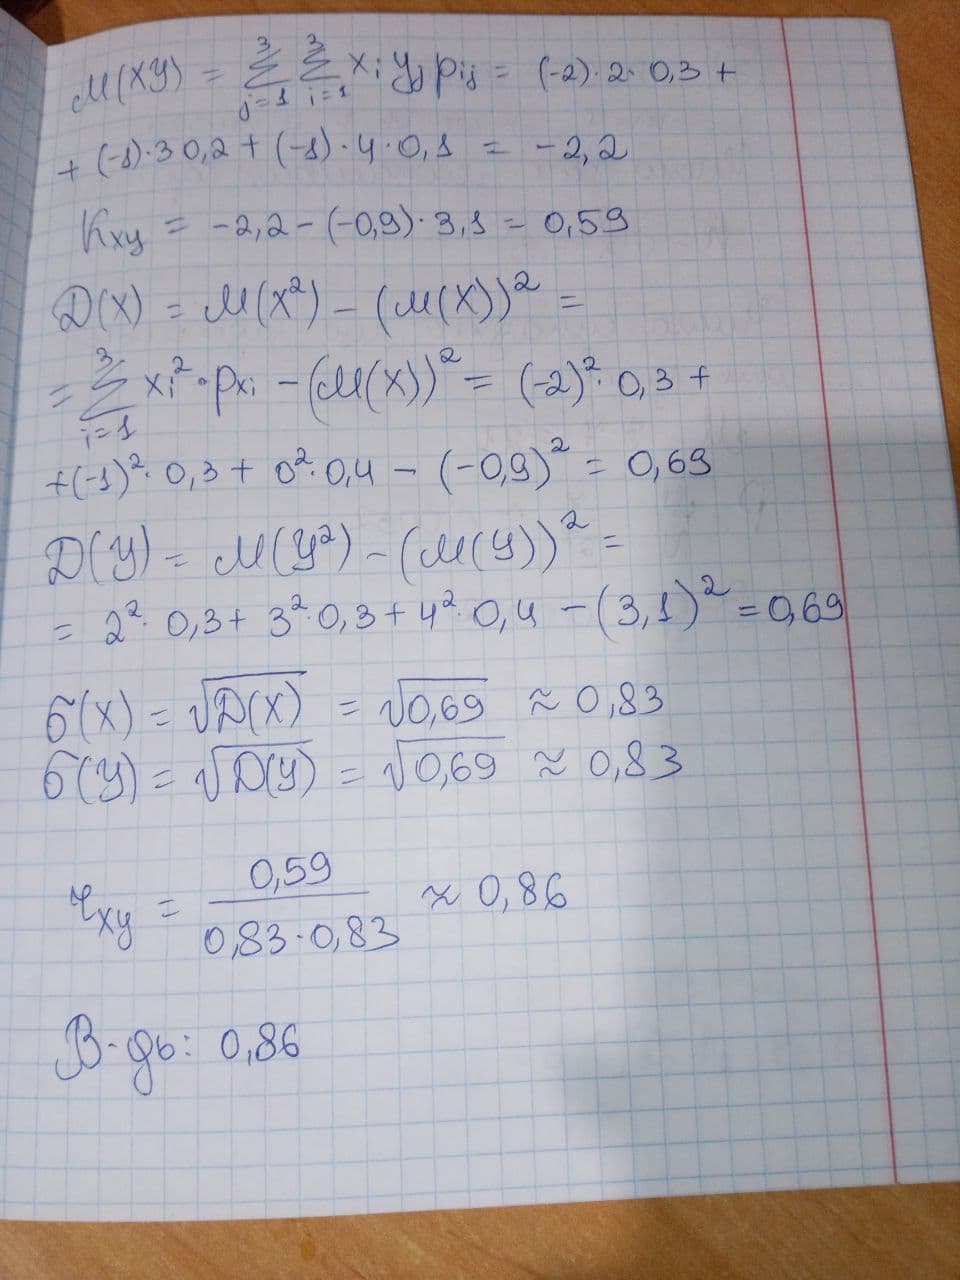 M(XY) = ∑_{j=1}^{3} ∑_{i=1}^{3} x_i y_j p_{ij} = (-2)·2·0,3 +
+ (-1)·3 0,2 + (-1)·4·0,1 = -2,2
K_{xy} = -2,2 - (-0,9)·3,1 = 0,59
D(X) = M(X²) - (M(X))² =
= ∑_{i=1}^{3} x_i²·p_{xi} - (M(X))² = (-2)²·0,3 +
+(-1)²·0,3 + 0²·0,4 - (-0,9)² = 0,69
D(Y) = M(Y²) - (M(Y))² =
= 2²·0,3 + 3²·0,3 + 4²·0,4 - (3,1)² = 0,69
σ(X) = √D(X) = √0,69 ≈ 0,83
σ(Y) = √D(Y) = √0,69 ≈ 0,83
r_{xy} = \frac{0,59}{0,83·0,83} ≈ 0,86
В-дь: 0,86